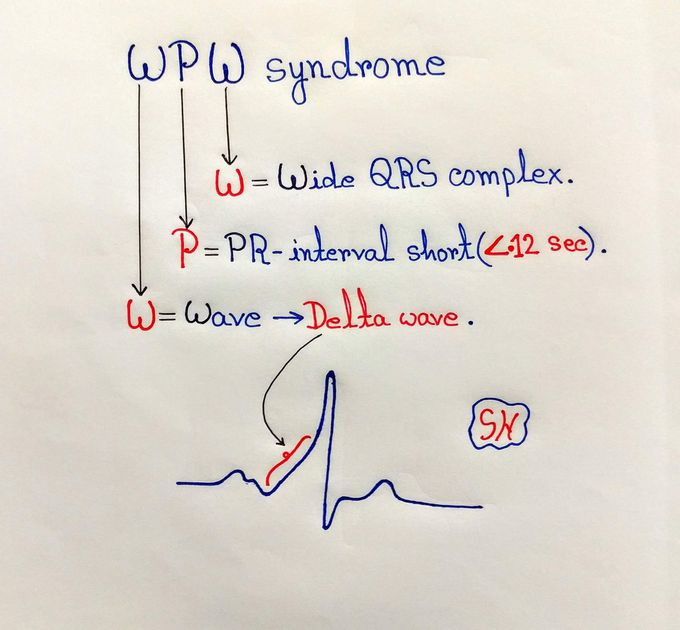 WPW syndrome
W = Wide QRS complex.
P = PR-interval short (<.12 sec).
W = Wave → Delta wave.
SN